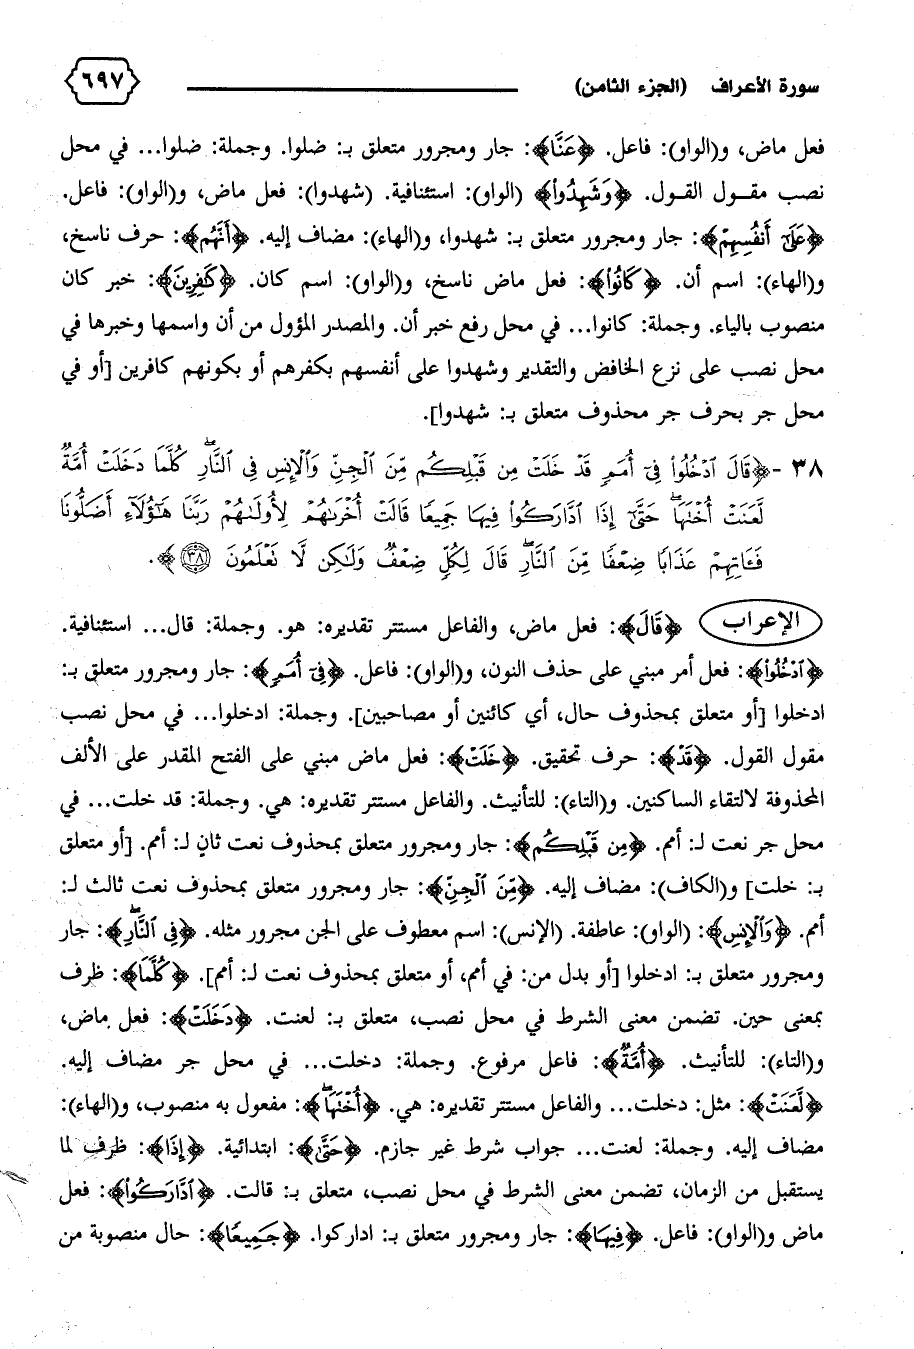 سورة الأعراف (الجزء الثامن) ٦٩٧
فعل ماض، و(الواو): فاعل. ﴿عَنَّا﴾: جار ومجرور متعلق بـ: ضلوا. وجملة: ضلوا... في محل
نصب مقـول القـول. ﴿وَشَهِدُوا۟﴾ (الواو): استئنافية. (شهدوا): فعل ماض، و(الواو): فاعل.
﴿عَلَىٰٓ أَنفُسِهِمْ﴾: جار ومجرور متعلق بـ: شهدوا، و(الهاء): مضاف إليه. ﴿أَنَّهُمْ﴾: حرف ناسخ،
و(الهاء): اسم أن. ﴿كَانُوا۟﴾: فعل ماض ناسخ، و(الواو): اسم كان. ﴿كَٰفِرِينَ﴾: خبر كان
منصوب بالياء. وجملة: كانوا... في محل رفع خبر أن. والمصدر المؤول من أن واسمها وخبرها في
محل نصب على نزع الخافض والتقدير وشهدوا على أنفسهم بكفرهم أو بكونهم كافرين [أو في
محل جر بحرف جر محذوف متعلق بـ: شهدوا].
٣٨ -﴿قَالَ ٱدْخُلُوا۟ فِىٓ أُمَمٍ قَدْ خَلَتْ مِن قَبْلِكُم مِّنَ ٱلْجِنِّ وَٱلْإِنسِ فِى ٱلنَّارِ ۖ كُلَّمَا دَخَلَتْ أُمَّةٌ
لَّعَنَتْ أُخْتَهَا ۖ حَتَّىٰٓ إِذَا ٱدَّارَكُوا۟ فِيهَا جَمِيعًا قَالَتْ أُخْرَىٰهُمْ لِأُولَىٰهُمْ رَبَّنَا هَٰٓؤُلَآءِ أَضَلُّونَا
فَـَٔاتِهِمْ عَذَابًا ضِعْفًا مِّنَ ٱلنَّارِ ۖ قَالَ لِكُلٍّ ضِعْفٌ وَلَٰكِن لَّا تَعْلَمُونَ ٣٨﴾.
الإعراب ﴿قَالَ﴾: فعل ماض، والفاعل مستتر تقديره: هو. وجملة: قال... استئنافية.
﴿ٱدْخُلُوا۟﴾: فعل أمر مبني على حذف النون، و(الواو): فاعل. ﴿فِىٓ أُمَمٍ﴾: جار ومجرور متعلق بـ:
ادخلوا [أو متعلق بمحذوف حال، أي كائنين أو مصاحبين]. وجملة: ادخلوا... في محل نصب
مقول القول. ﴿قَدْ﴾: حرف تحقيق. ﴿خَلَتْ﴾: فعل ماض مبني على الفتح المقدر على الألف
المحذوفة لالتقاء الساكنين. و(التاء): للتأنيث. والفاعل مستتر تقديره: هي. وجملة: قد خلت... في
محل جر نعت لـ: أمم. ﴿مِن قَبْلِكُم﴾: جار ومجرور متعلق بمحذوف نعت ثانٍ لـ: أمم. [أو متعلق
بـ: خلت] و(الكاف): مضاف إليه. ﴿مِّنَ ٱلْجِنِّ﴾: جار ومجرور متعلق بمحذوف نعت ثالث لـ:
أمم. ﴿وَٱلْإِنسِ﴾: (الواو): عاطفة. (الإنس): اسم معطوف على الجن مجرور مثله. ﴿فِى ٱلنَّارِ ۖ﴾: جار
ومجرور متعلق بـ: ادخلوا [أو بدل من: في أمم، أو متعلق بمحذوف نعت لـ: أمم]. ﴿كُلَّمَا﴾: ظرف
بمعنى حين. تضمن معنى الشرط في محل نصب، متعلق بـ: لعنت. ﴿دَخَلَتْ﴾: فعل ماض،
و(التاء): للتأنيث. ﴿أُمَّةٌ﴾: فاعل مرفوع. وجملة: دخلت... في محل جر مضاف إليه.
﴿لَّعَنَتْ﴾: مثل: دخلت... والفاعل مستتر تقديره: هي. ﴿أُخْتَهَا ۖ﴾: مفعول به منصوب، و(الهاء):
مضاف إليه. وجملة: لعنت... جواب شرط غير جازم. ﴿حَتَّىٰٓ﴾: ابتدائية. ﴿إِذَا﴾: ظرف لما
يستقبل من الزمان، تضمن معنى الشرط في محل نصب، متعلق بـ: قالت. ﴿ٱدَّارَكُوا۟﴾: فعل
ماض و(الواو): فاعل. ﴿فِيهَا﴾: جار ومجرور متعلق بـ: اداركوا. ﴿جَمِيعًا﴾: حال منصوبة من